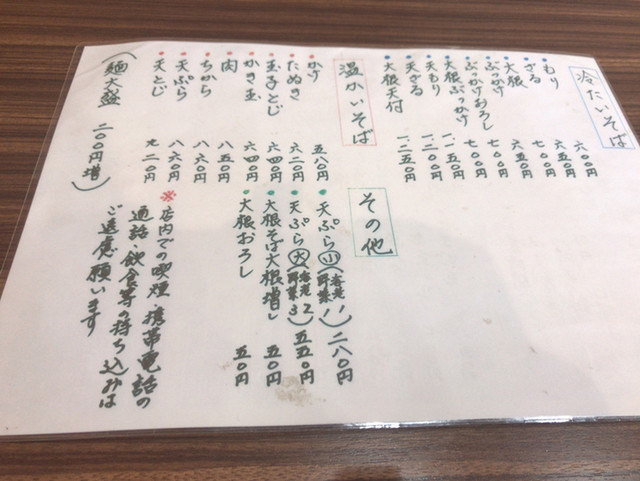 冷たいそば
もり 六〇〇円
ざる 七〇〇円
大根 六五〇円
ぶっかけ 六五〇円
ぶっかけおろし 七〇〇円
大根ぶっかけ 七〇〇円
天もり 一一五〇円
天ざる 一二〇〇円
大根天付 一二五〇円
温かいそば
かけ 五八〇円
たぬき 六二〇円
玉子とじ 六四〇円
かき玉 六四〇円
肉 八五〇円
ちから 八六〇円
天ぷら 八六〇円
天とじ 九二〇円
(麺大盛 二〇〇円増)
その他
天ぷら小(海老1 野菜1) 二八〇円
天ぷら大(海老2 野菜3) 五五〇円
大根そば大根増し 五〇円
大根おろし 五〇円
※店内での喫煙・携帯電話の
通話・飲食等の持ち込みは
ご遠慮願います